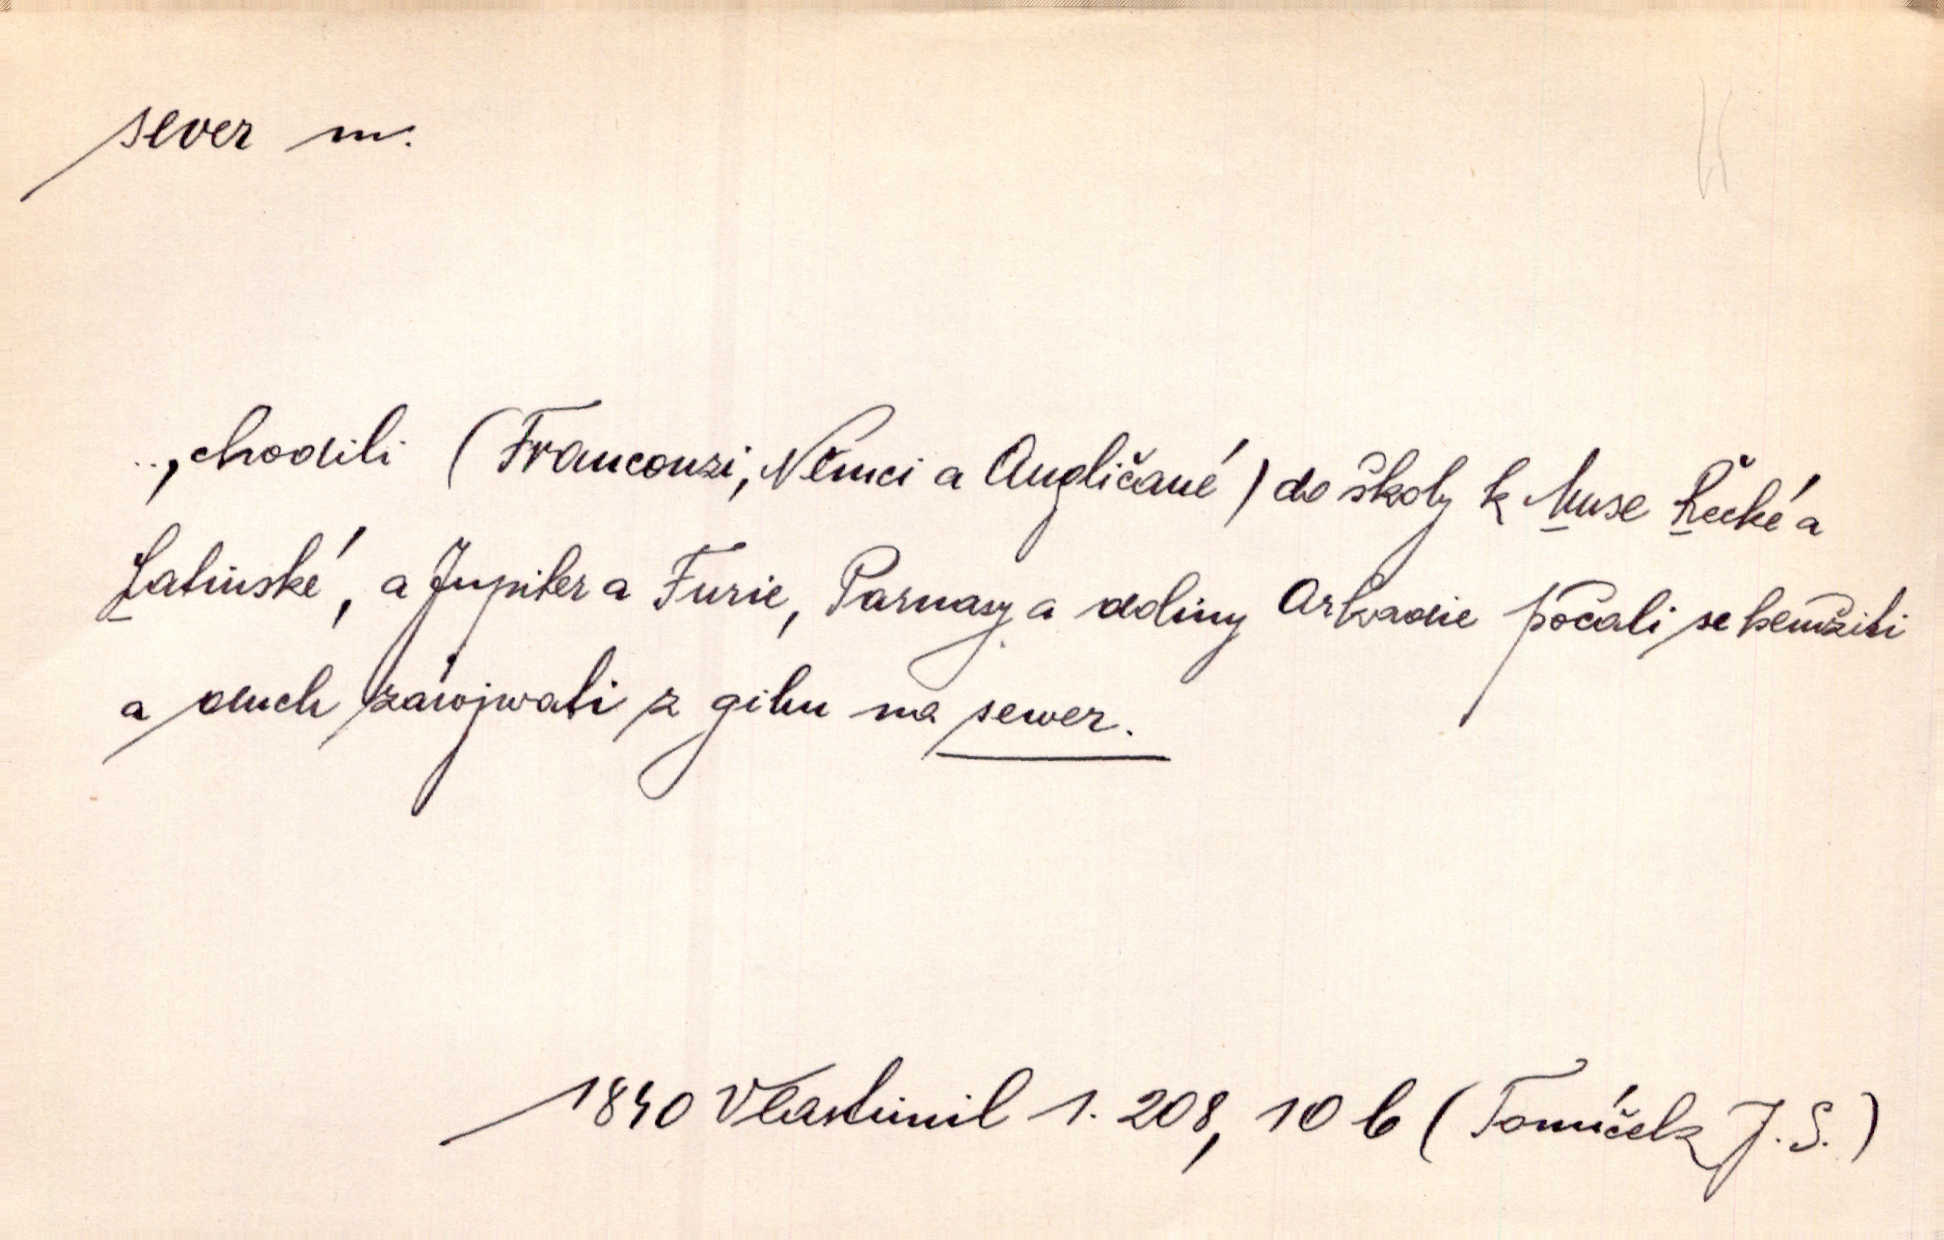 sever m.
.., chodili (Francouzi, Němci a Angličané) do školy k Muse Řecké a
Latinské, a Jupiter a Furie, Parnasy a doliny Arkadie počali se hemžiti
a duch zárojwati z gihu na sewer.
1840 Vlastimil 1. 208, 10 b (Tomíček J. S.)